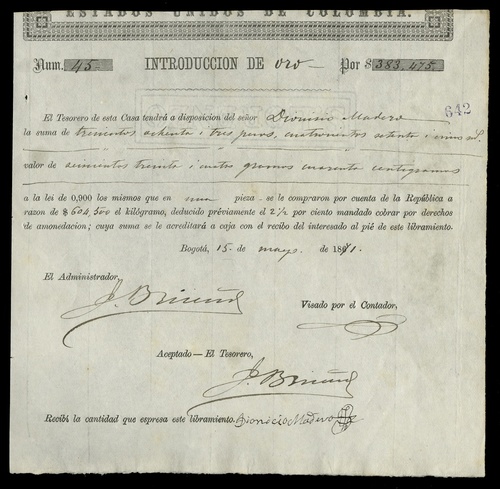 ESTADOS UNIDOS DE COLOMBIA.
Num. 45 INTRODUCCION DE oro Por $ 383-475
642
El Tesorero de esta Casa tendrá a disposicion del señor Dionisio Madero
la suma de trescientos ochenta i tres pesos, cuatrocientos setenta i cinco mil.
valor de seiscientos treinta i cuatro gramos cuarenta centigramos
a la lei de 0,900 los mismos que en una pieza - se le compraron por cuenta de la República a
razon de $ 604,500 el kilógramo, deducido préviamente el 2½ por ciento mandado cobrar por derechos
de amonedacion; cuya suma se le acreditará a caja con el recibo del interesado al pié de este libramiento.
Bogotá, 15 de mayo. de 1871.
El Administrador,
Visado por el Contador,
Aceptado—El Tesorero,
Recibí la cantidad que espresa este libramiento. Dionicio Madero